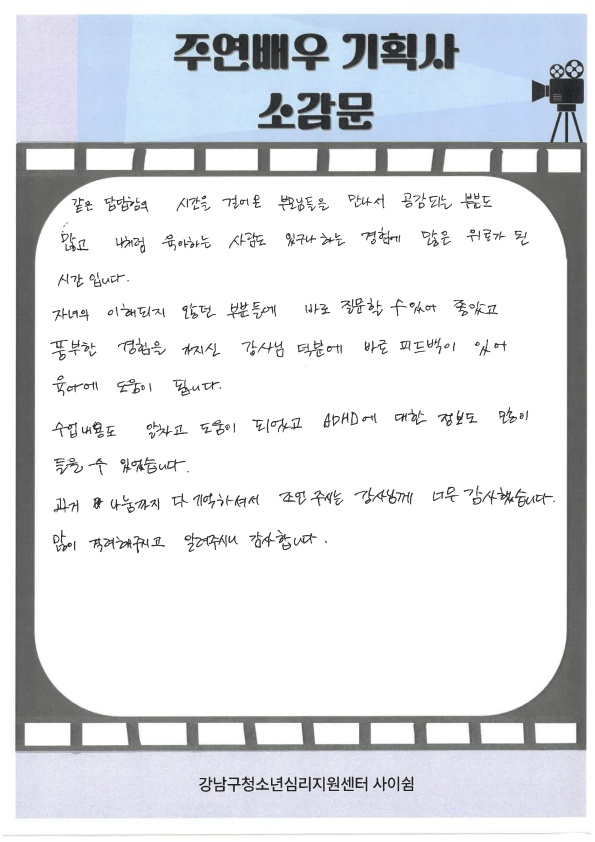 주연배우 기획사
소감문
같은 답답함의 시간을 걸어온 부모님들을 만나서 공감되는 부분도
많고 나처럼 육아하는 사람도 있구나 하는 경험에 많은 위로가 된
시간 입니다.
자녀의 이해되지 않던 부분들에 바로 질문할 수 있어 좋았고
풍부한 경험을 가지신 강사님 덕분에 바로 피드백이 있어
육아에 도움이 됩니다.
수업내용도 알차고 도움이 되었고 ADHD에 대한 정보도 많이
들을 수 있었습니다.
과거 나눔까지 다 기억하셔서 조언 주시는 강사님께 너무 감사했습니다.
많이 격려해주시고 알려주시니 감사합니다.
강남구청소년심리지원센터 사이쉼